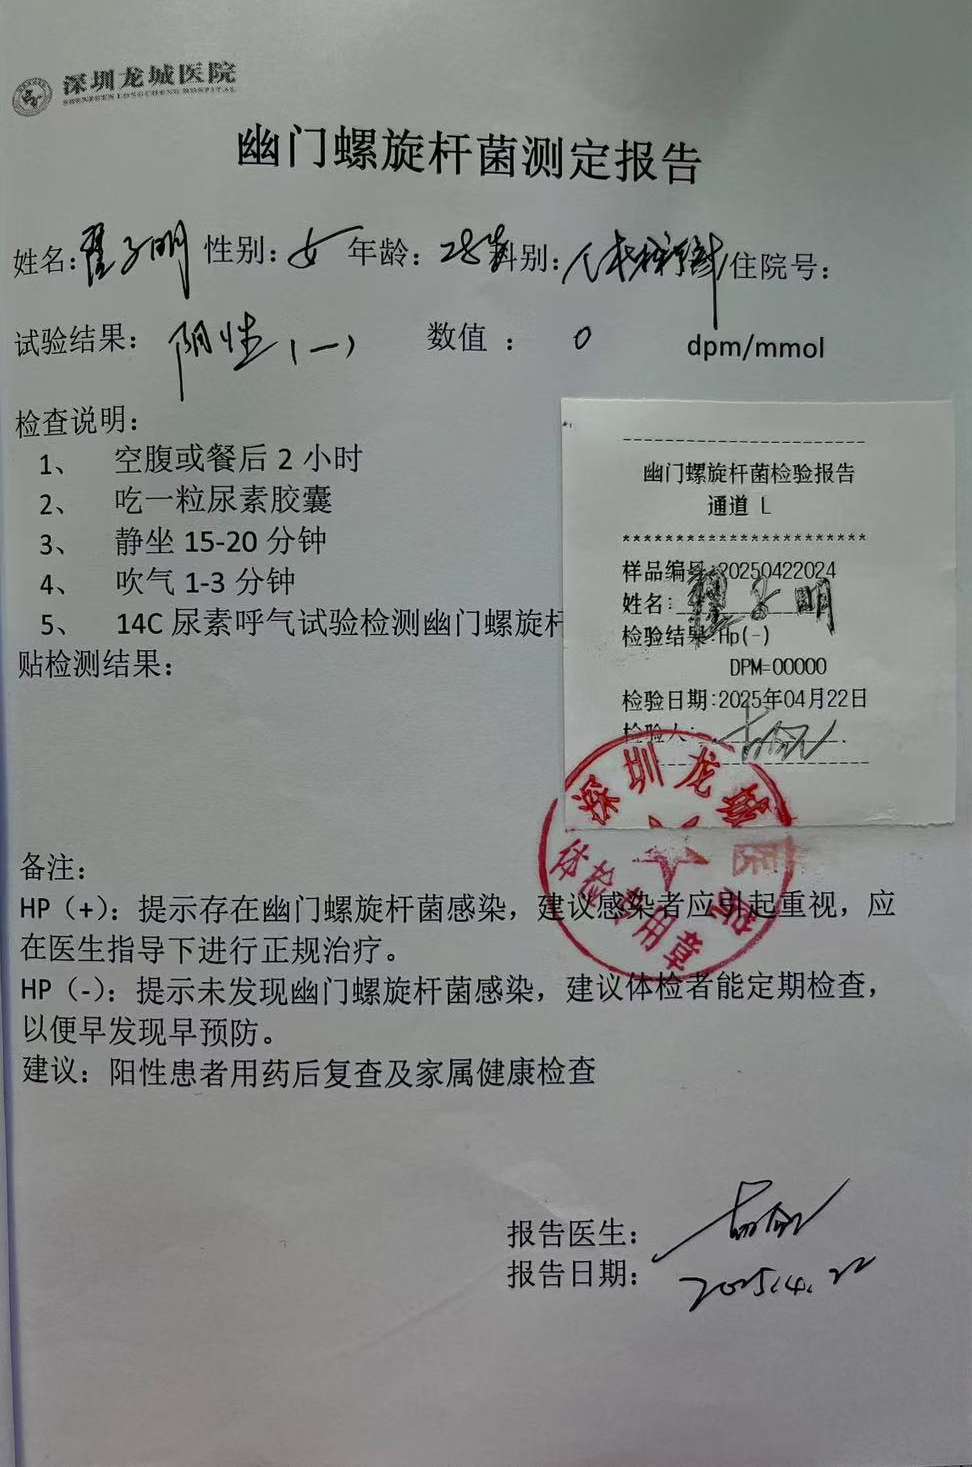 深圳龙城医院
SHENZHEN LONGCHENG HOSPITAL
幽门螺旋杆菌测定报告
姓名：翟子明 性别：女 年龄：28岁 科别： 住院号：
试验结果： 性（一） 数值 ： 0 dpm/mmol
检查说明：
1、 空腹或餐后 2 小时
2、 吃一粒尿素胶囊
3、 静坐 15-20 分钟
4、 吹气 1-3 分钟
5、 14C 尿素呼气试验检测幽门螺旋杆
贴检测结果：
幽门螺旋杆菌检验报告
通道 L
***********************
样品编号:20250422024
姓名: 翟子明
检验结果:Hp(-)
DPM=00000
检验日期:2025年04月22日
检验人:
深圳龙城医院
体检专用章
备注：
HP（+）：提示存在幽门螺旋杆菌感染，建议感染者应引起重视，应
在医生指导下进行正规治疗。
HP（-）：提示未发现幽门螺旋杆菌感染，建议体检者能定期检查，
以便早发现早预防。
建议：阳性患者用药后复查及家属健康检查
报告医生：
报告日期： 2025.4.22